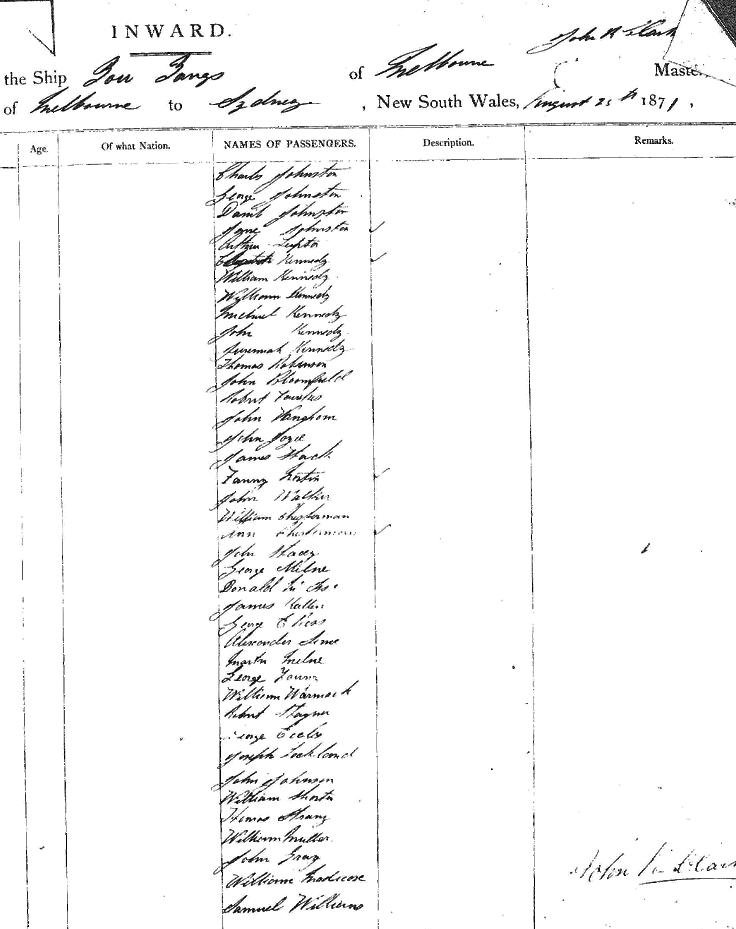 INWARD.
John R Clark
the Ship You Yangs of Melbourne Master
of Melbourne to Sydney, New South Wales, August 25th 1871,
Age. Of what Nation. NAMES OF PASSENGERS. Description. Remarks.
Charles Johnston
George Johnston
David Johnston
Jane Johnston
Arthur Lupton
Elizabeth Kennedy
William Kennedy
William Kennedy
Michael Kennedy
John Kennedy
Jeremiah Kennedy
Thomas Robinson
John Bloomfield
Robert
John Wingham
John Joyce
James Stack
Fanny
John Walker
William Chesterman
Ann Chesterman
John Stacey
George Milne
Donald
James
George
Alexander
Martin Milne
George Young
William Warmack
Robert
George Eccles
Joseph Lockland
John Johnson
William
Thomas Strang
William Miller
John Gray
William
Samuel Williams
John R Clark